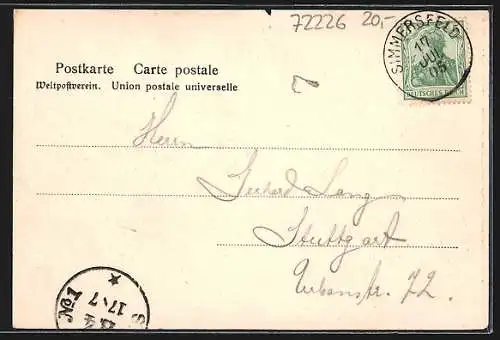 72226 20,-
SIMMERSFELD
17
JUL
05
DEUTSCHES REICH
Postkarte Carte postale
Weltpostverein. Union postale universelle
Herrn
Gerhard Lang
Stuttgart
Urbanstr. 72.
No 1
17 7
S